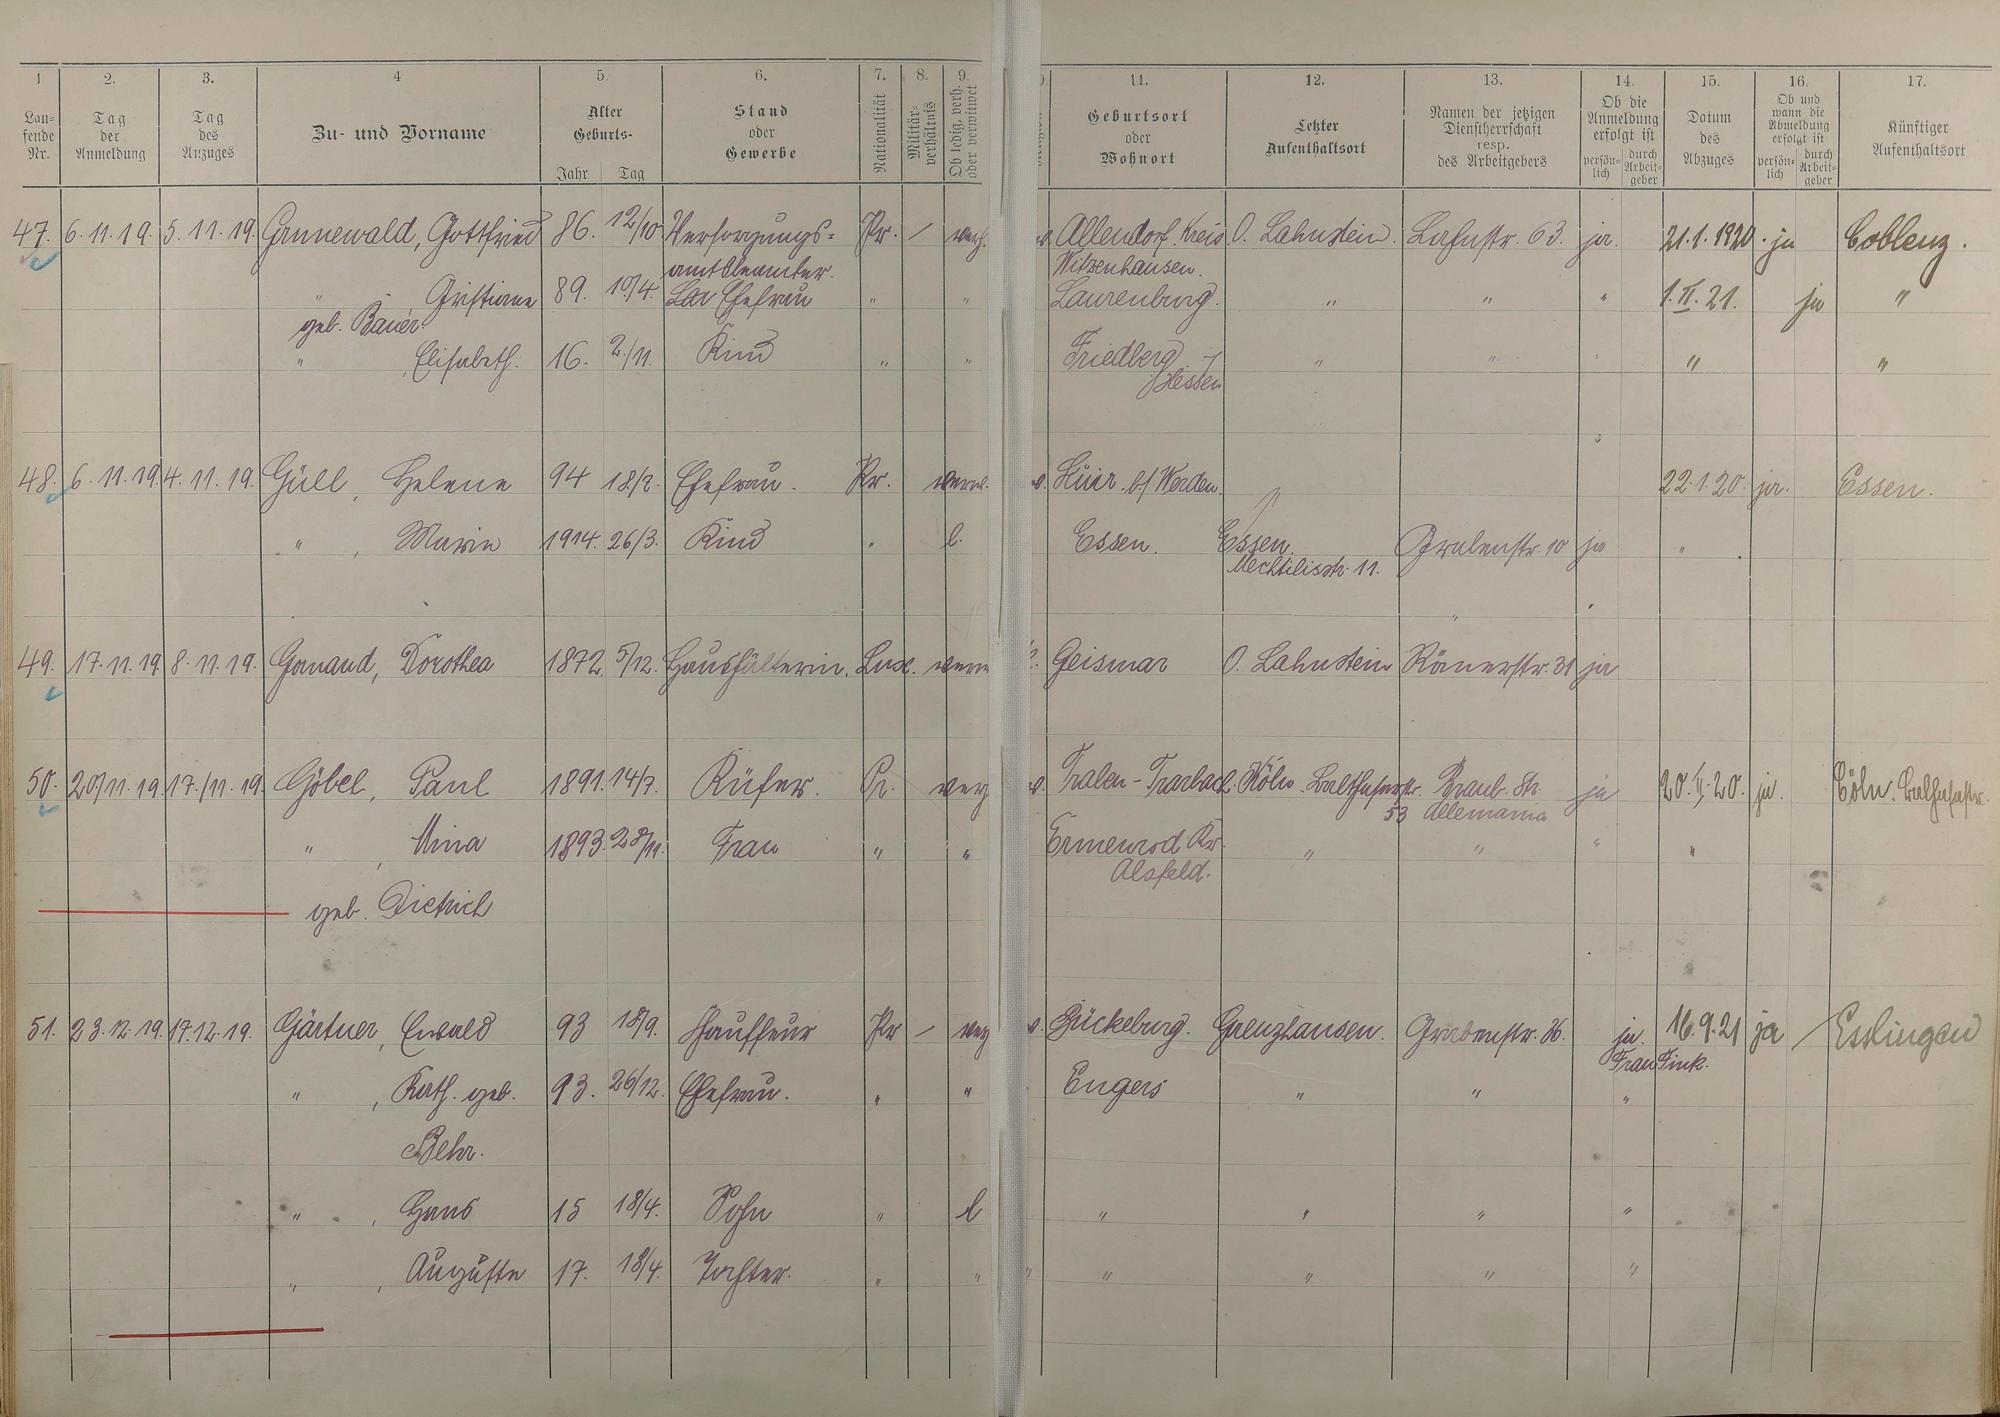 1 2. 3. 4 5. 6. 7. 8. 9. 11. 12. 13. 14. 15. 16. 17.
Lau-
fende
Nr.
Tag
der
Anmeldung
Tag
des
Anzuges
Zu- und Vorname
Alter
Geburts-
Jahr Tag
Stand
oder
Gewerbe
Nationalität
Militär-
verhältnis
Ob ledig, verh.
oder verwitwet
Geburtsort
oder
Wohnort
Letzter
Aufenthaltsort
Namen der jetzigen
Dienstherrschaft
resp.
des Arbeitgebers
Ob die
Anmeldung
erfolgt ist
persön-
lich
durch
Arbeit-
geber
Datum
des
Abzuges
Ob und
wann die
Abmeldung
erfolgt ist
persön-
lich
durch
Arbeit-
geber
Künftiger
Aufenthaltsort
47. 6.11.19. 5.11.19. Grunewald, Gottfried 86. 12/10. Versorgungs= Pr. / verh. Allendorf Kreis O. Lahnstein. Lahnstr. 63. ja. 21.1.1920. ja Coblenz.
amtsbeamter. Witzenhausen.
" Christiane 89. 10/4. Ehefrau " " Laurenburg. " " " 1.II.21. ja "
geb. Bauer.
" , Elisabeth. 16. 2./11. Kind " " Friedberg " " " " "
Hessen
48. 6.11.19. 4.11.19. Güll, Helene 94 18/2. Ehefrau. Pr. verw. b/ Werden. 22.1.20. ja. Essen.
" , Maria 1914. 26/3. Kind " l. Essen. Essen. Grabenstr. 10 ja "
Mechtilisstr. 11.
49. 17.11.19. 8.11.19. Gomand, Dorothea 1872. 5/12. Haushälterin. Lux. verw Geismar O. Lahnstein 31 ja
50. 20/11.19. 17./11.19. Göbel, Paul 1891. 14/7. Küfer. Pr. verh Traben-Trarbach. Köln. Balthasarstr. Braub. Str. ja 20.II.20. ja. Cöln. Balthasarstr.
53 Allemania
" , Mina 1893. 28/11. Frau " " Ermenrod Kr. " " " "
Alsfeld.
geb. Dietrich
51. 23.12.19. 17.12.19. Gärtner, Ewald 93 18/9. Chauffeur Pr / verh Bückeburg. Grenzhausen. Grabenstr. 36. ja. 16.9.21 ja / Eslingen
Frau Fink.
" , Kath. geb. 93. 26/12. Ehefrau. " " Engers " " "
Behr.
" , Hans 15 18/4. Sohn " l " " " "
" , Auguste 17. 18/4. Tochter. " " " " " "